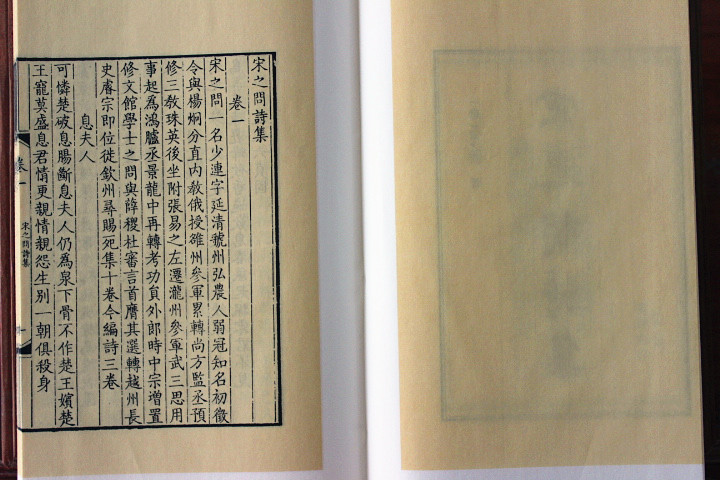 宋之問詩集
卷一
宋之問一名少連字延清虢州弘農人弱冠知名初徵
令與楊炯分直内教俄授雒州參軍累轉尚方監丞預
修三教珠英後坐附張易之左遷瀧州參軍武三思用
事起為鴻臚丞景龍中再轉考功員外郎時中宗增置
修文館學士之問與薛稷杜審言首膺其選轉越州長
史睿宗即位徙欽州尋賜死集十卷今編詩三卷
息夫人
可憐楚破息腸斷息夫人仍為泉下骨不作楚王嬪楚
王寵莫盛息君情更親情親怨生別一朝俱殺身
卷一
宋之問詩集
一